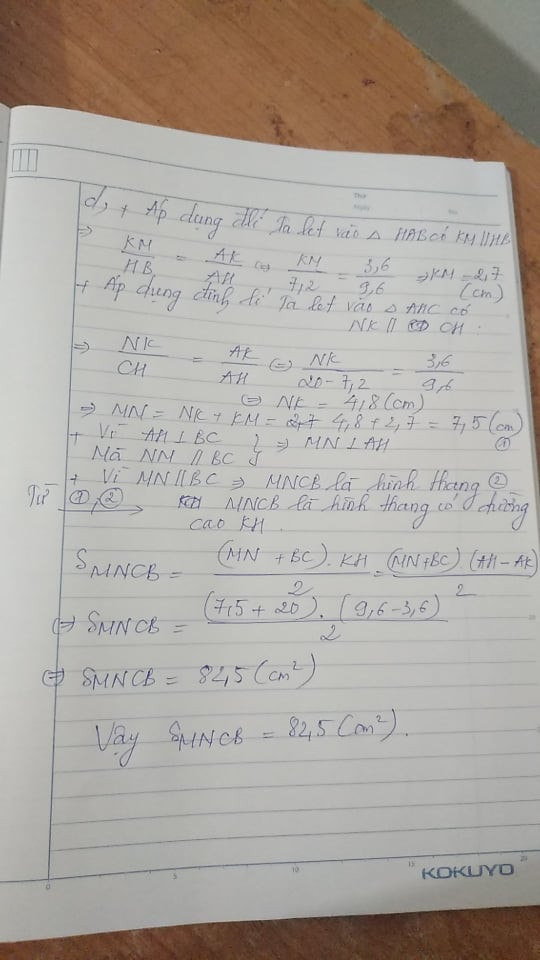 Thứ
Ngày
No.
d, + Áp dụng đlí Ta let vào △ HAB có KM // HB
⇒ KM/HB = AK/AH ⇔ KM/7,2 = 3,6/9,6 ⇒ KM = 2,7 (cm)
+ Áp dụng định lí Ta let vào △ AHC có
NK // CH :
⇒ NK/CH = AK/AH ⇔ NK/20-7,2 = 3,6/9,6
⇔ NK = 4,8 (cm)
⇒ MN = NK + KM = 4,8 + 2,7 = 7,5 (cm)
+ Vì AH ⊥ BC } ⇒ MN ⊥ AH ①
Mà NM // BC
+ Vì MN // BC ⇒ MNCB là hình thang ②
Từ ①, ② → MNCB là hình thang có đường
cao KH.
SMNCB = (MN + BC). KH / 2 = (MN+BC) (AH - AK) / 2
⇔ SMNCB = (7,5 + 20) . (9,6 - 3,6) / 2
⇔ SMNCB = 82,5 (cm²)
Vậy SMNCB = 82,5 (cm²).
KOKUYO
0 5 10 15 20